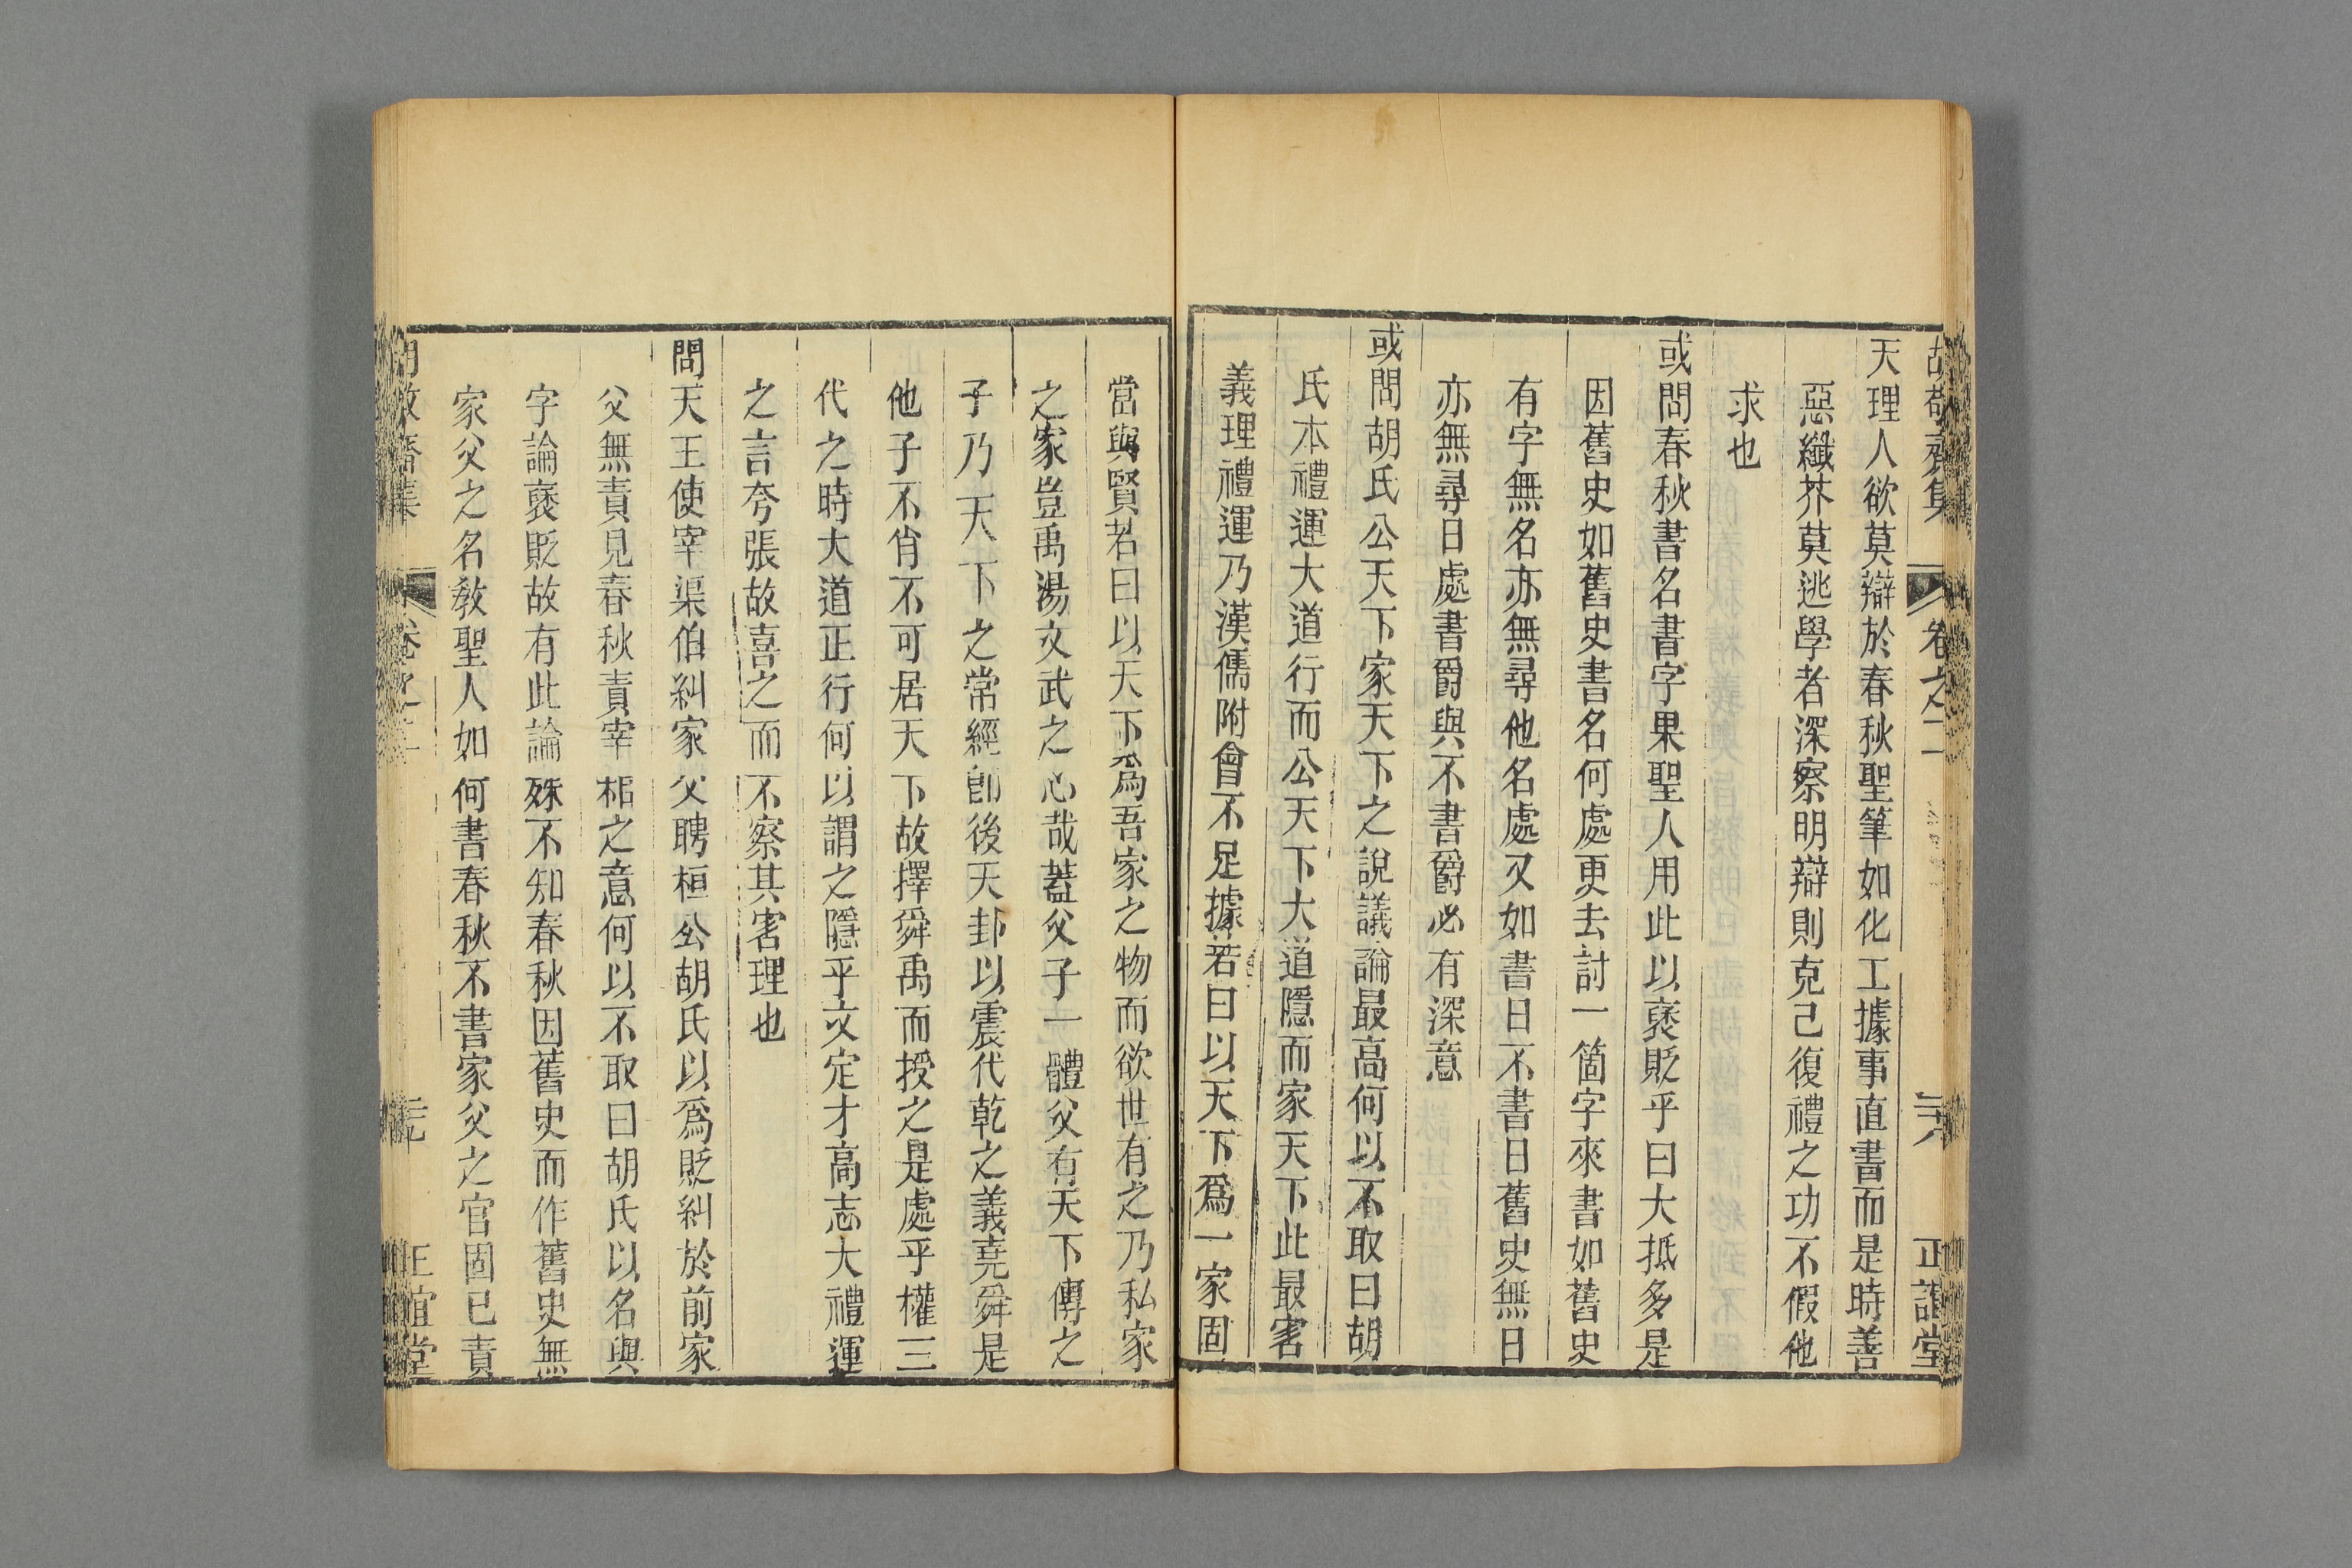 胡敬齋集 卷之二 二六 正誼堂
天理人欲莫辯於春秋聖筆如化工據事直書而是時善
惡纖芥莫逃學者深察明辯則克己復禮之功不假他
求也
或問春秋書名書字果聖人用此以褒貶乎曰大抵多是
因舊史如舊史書名何處更去討一箇字來書如舊史
有字無名亦無尋他名處又如書日不書日舊史無日
亦無尋日處書爵與不書爵必有深意
或問胡氏公天下家天下之說議論最高何以不取曰胡
氏本禮運大道行而公天下大道隱而家天下此最害
義理禮運乃漢儒附會不足據若曰以天下爲一家固
當與賢若曰以天下爲吾家之物而欲世有之乃私家
之家豈禹湯文武之心哉葢父子一體父有天下傳之
子乃天下之常經卽後天卦以震代乾之義堯舜是
他子不肖不可居天下故擇舜禹而授之是處乎權三
代之時大道正行何以謂之隱乎文定才高志大禮運
之言夸張故喜之而不察其害理也
問天王使宰渠伯糾家父聘桓公胡氏以爲貶糾於前家
父無責見春秋責宰相之意何以不取曰胡氏以名與
字論褒貶故有此論殊不知春秋因舊史而作舊史無
家父之名敎聖人如何書春秋不書家父之官固已責
胡敬齋集 卷之二 正誼堂